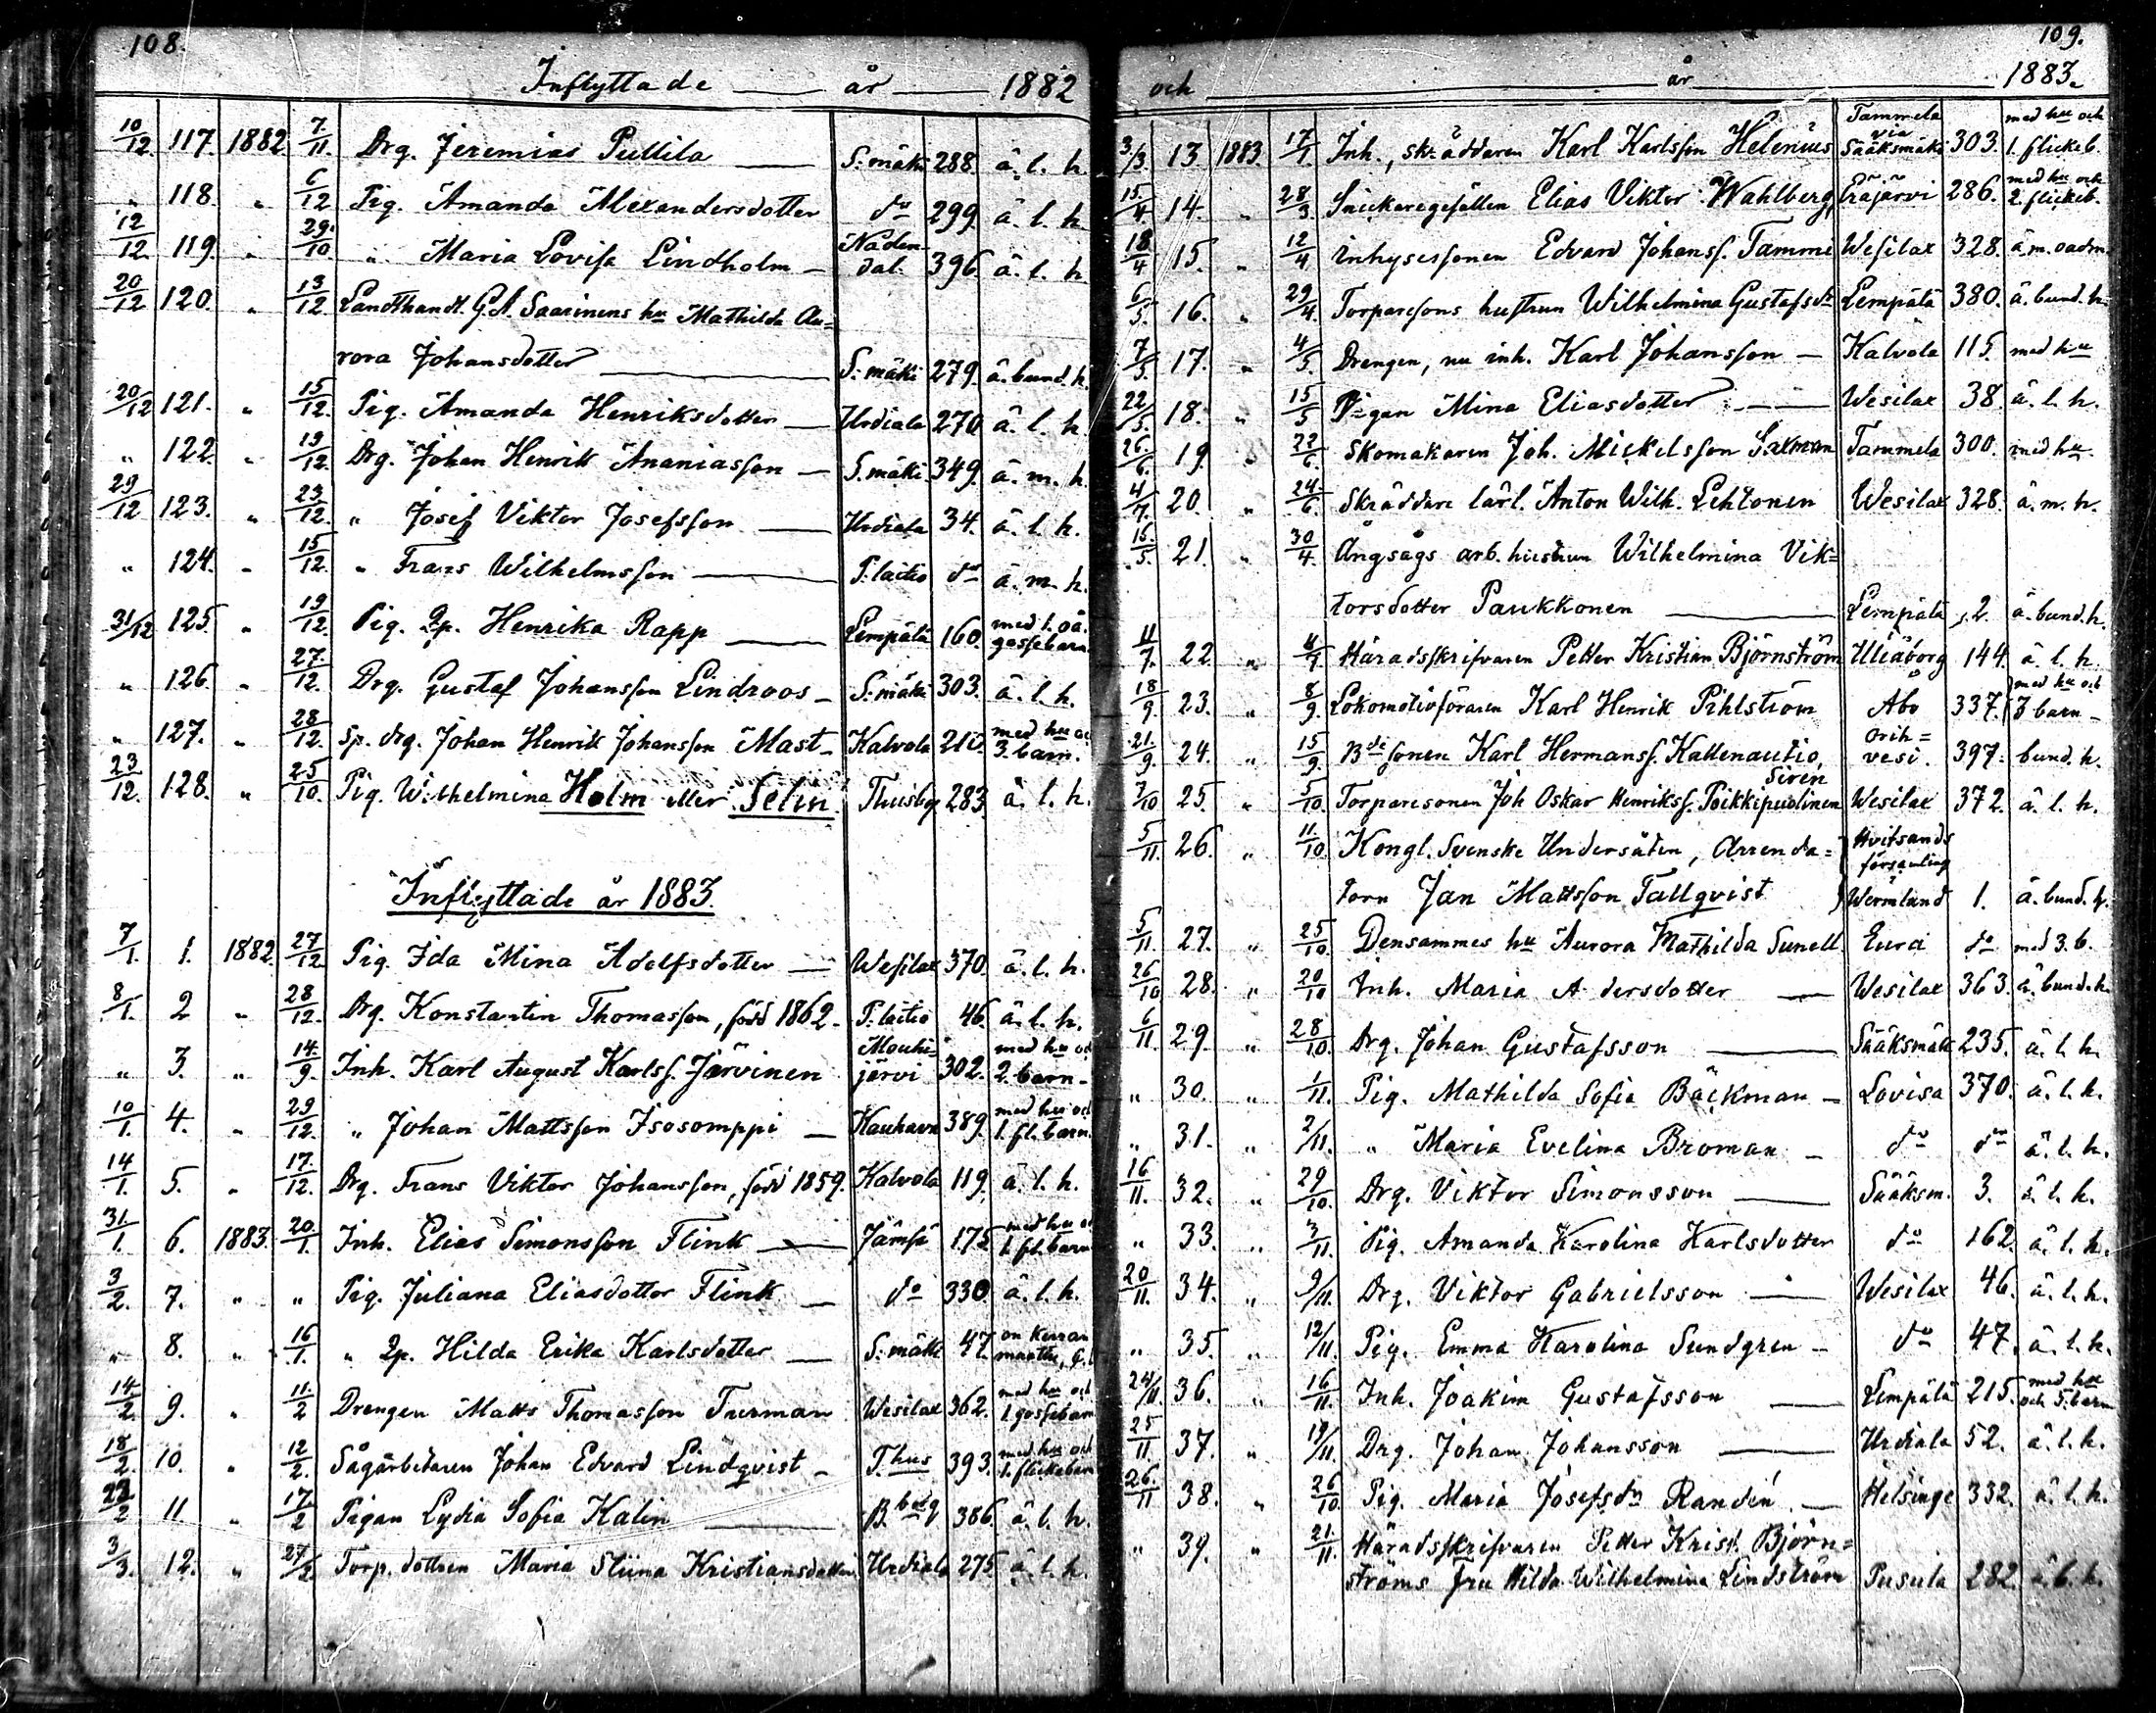 108.
Inflyttade år 1882
10/12. 117. 1882. 7/11. Drg. Jeremias Pullila S:mäki 288. ä. l. h.
" 118. " 6/12 Pig. Amanda Alexandersdotter do 299. ä. l. h.
12/12. 119. " 29/10 " Maria Lovisa Lindholm Nådendal. 396 ä. l. h.
20/12 120. " 13/12. Landthandl. G.A. Saarinens hu Mathilda Au=
rora Johansdotter S:mäki 279. ä. bund. h.
20/12 121. " 15/12. Pig. Amanda Henriksdotter Urdiala 270 ä. l. h.
" 122. " 19/12. Drg. Johan Henrik Ananiasson S.mäki. 349. ä. m. h.
29/12 123. " 23/12. " Josef Viktor Josefsson Urdiala 34. ä. l. h.
" 124. " 15/12. " Frans Wilhelmsson P.laitio do ä. m. h.
31/12 125. " 19/12. Pig. Qp. Henrika Rapp Lempälä 160. med 1. oä. gossebarn
" 126. " 27/12. Drg. Gustaf Johansson Lindroos S:mäki 303. ä. l. h.
" 127. " 28/12. Sp. drg. Johan Henrik Johansson Mast Kalvola 210. med hu o. 3. barn.
23/12. 128. " 25/10. Pig. Wilhelmina Holm eller Selin Thusby 283. ä. l. h.
Inflyttade år 1883.
7/1. 1. 1882. 27/12 Pig. Ida Mina Adolfsdotter Wesilax 370. ä. l. h.
8/1. 2 " 28/12. Drg. Konstantin Thomasson, född 1862. P.laitio 46. ä. l. h.
" 3. " 14./9. Inh. Karl August Karlss. Järvinen Mouhijärvi 302. med hu o 2. barn
10/1. 4. " 29/12. " Johan Mattsson Isosomppi Kauhava 389. med hu och 1. fl. barn
14/1. 5. " 17/12. Drg. Frans Viktor Johansson, född 1859. Kalvola 119. ä. l. h.
31/1. 6. 1883. 20/1. Inh. Elias Simonsson Flink Jämsä 175 med hu o 1. fl. barn
3/2. 7. " " Pig. Juliana Eliasdotter Flink do 330. ä. l. h.
" 8. " 16/1. " Qp. Hilda Erika Karlsdotter S:mäki 47. on kerran
14/2. 9. " 11/2 Drengen Matts Thomasson Turman Wesilax 362. med hu och 1. gossebarn
18/2. 10. " 12/2. Sågarbetaren Johan Edvard Lindqvist T.hus 393. med hu och 1. flickebarn
22/2 11. " 17/2 Pigan Lydia Sofia Kalin B.borg 386. ä. l. h.
3/3. 12. " 27/2. Torp. dottren Maria Stiina Kristiansdotter Urdiala 275. ä. l. h.
109.
och år 1883.
3/3. 13 1883. 17/1. Inh., skräddaren Karl Karlsson Helenius Tammela via Sääksmäki 303. med hu och 1. flickeb.
15/4. 14. " 28/3 Snickaregesällen Elias Viktor Wahlberg Eräjärvi 286. med hu och 2. flickeb.
18/4 15. " 12/4 inhysessonen Edvard Johanss. Tammi Wesilax 328. ä. m. oadm.
6/5. 16. " 29/4. Torparesons hustrun Wilhelmina Gustafsdr Lempälä 380. ä. bund. h.
7/5. 17. " 4/5. Drengen, nu inh. Karl Johansson Kalvola 115. med hu
22/5. 18. " 15/5 Pigan Mina Eliasdotter Wesilax 38. ä. l. h.
26/6. 19 " 22/6. Skomakaren Joh. Mickelsson Saxman Tammela 300. med hu
4/7. 20. " 24/6. Skräddare lärl. Anton Wilh. Lehtonen Wesilax 328. ä. m. h.
15/5. 21. " 30/4. Ångsågs arb. hustrun Wilhelmina Vik=
torsdotter Paukkonen Lempälä 2. ä. bund. h.
11/7. 22. " 4/7 Häradsskrifvaren Petter Kristian Björnström Uleåborg 144. ä. l. h.
18/9. 23. " 8/9. Lokomotivföraren Karl Henrik Pihlström Åbo 337. med hu och 7 barn
21/9 24. " 15/9. Bdesonen Karl Hermanss. Kallenautio, Orih=vesi. 397. bund. h.
7/10 25. " 5/10. Torparesonen Joh Oskar Henrikss. Poikkipuolinen Siren Wesilax 372. ä. l. h.
5/11. 26. " 11/10. Kongl. Svenske Undersåten, Arrenda= Hvitsands församling
torn Jan Mattsson Tallqvist Wermland 1. ä. bund. h.
5/11 27. " 25/10. Densammes hu Aurora Mathilda Sunell Eura do med 3. b.
26/10 28. " 20/10 Inh. Maria A dersdotter Wesilax 363. ä. bund. h.
6/11 29. " 28/10. Drg. Johan Gustafsson Sääksmäki 235. ä. l. h.
" 30. " 1/11. Pig. Mathilda Sofia Bäckman Lovisa 370. ä. l. h.
" 31. " 2/11. " Maria Evelina Broman do do ä. l. h.
16/11. 32. " 29/10. Drg. Viktor Simonsson Sääksm. 3. ä. l. h.
" 33. " 3/11. Pig. Amanda Karolina Karlsdotter do 162. ä. l. h.
20/11. 34. " 9/11. Drg. Viktor Gabrielsson Wesilax 46. ä. l. h.
" 35. " 12/11. Pig. Emma Karolina Sundgren do 47. ä. l. h.
24/11 36. " 16/11. Inh. Joakim Gustafsson Lempälä 215. med hu och 5. barn
25/11 37. " 19/11. Drg. Johan Johansson Urdiala 52. ä. l. h.
26./11 38. " 26/10 Pig. Maria Josefsdr Randén Helsinge 332. ä. l. h.
" 39. " 21./11. Häradsskrifvaren Petter Krist. Björn=
ströms fru Hilda Wilhelmina Lindström Pusula 282. ä. b. h.